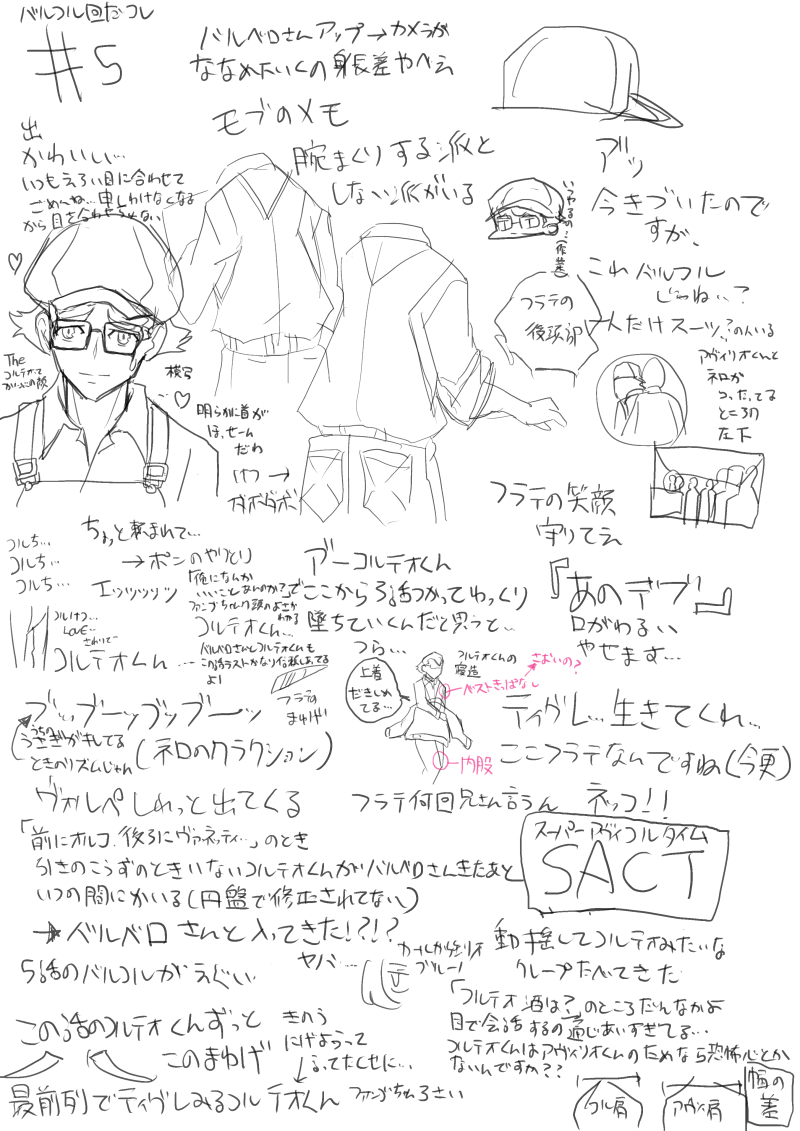 バルコル回だコレ
#5
バルベロさんアップ→カメラが
ななめたいくの身長差やべえ
モブのメモ
腕まくりする派と
しない派がいる
出
かわいい…
いつもえろい目に合わせて
ごめんね…申しわけなくなる
から目を合わせられない
The
模写
明らかに首が
ほっせーん
だわ
けつ→
ガボガボ
アッ
今きづいたので
すが、
これバルコル
じゃねぃ?
一人だけスーツ?の人いる
フラテの
後頭部
アヴィリオくんと
ネロが
つったってる
ところの
左下
フラテの笑顔
守りてえ
『あのデブ』
口がわるい
やせます…
ちょっと頼まれて…
コルち…
コルち…
コルち…
→ポンのやりとり
エッッッッッ
「俺になんか
いいことなんのか?」で
コルけつ…
LOVE…
コルテオくん…
コルテオくん…
バルベロさんとコルテオくんも
この話ラストかなり信頼しあってる
よ!
アーコルテオくん
ここから3話つかってゆっくり
墜ちていくんだと思うと…
つら…
上着
だきしめ
てる…
コルテオくんの
寝造
さむいの?
ベストきっぱなし
内股
フラテの
まゆげ
ブッッブーッブッブーーッ
(うちのうさぎがキレてる
ときのリズムじゃん)
(ネロのクラクション)
ティグレ…生きてくれ…
ここフラテなんですね(今更)
ヴォルペしれっと出てくる
フラテ何回兄さん言うん
ネッコ!!
「前にオルコ、後ろにヴァネッティ…」のとき
引きのこうずのときいないコルテオくんがバルベロさんきたあと
いつの間にかいる(円盤で修正されてない)
スーパーアヴィコルタイム
SACT
→バルベロさんと入ってきた!?!?
ヤバ…
5話のバルコルがえぐい
動揺してコルテオみたいな
クレープたべてきた
「コルテオ酒は?」のところだんなかよ
目で会話するの通じあいすぎてる…
コルテオくんはアヴィリオくんのためなら恐怖心とか
ないんですか??
この話のコルテオくんずっと
このまゆげ
きのう
にげようって
ゆってたくせに…
最前列でティグレみるコルテオくん
ファンゴちゃんうるさい
コル肩
アヴィ肩
幅の
差